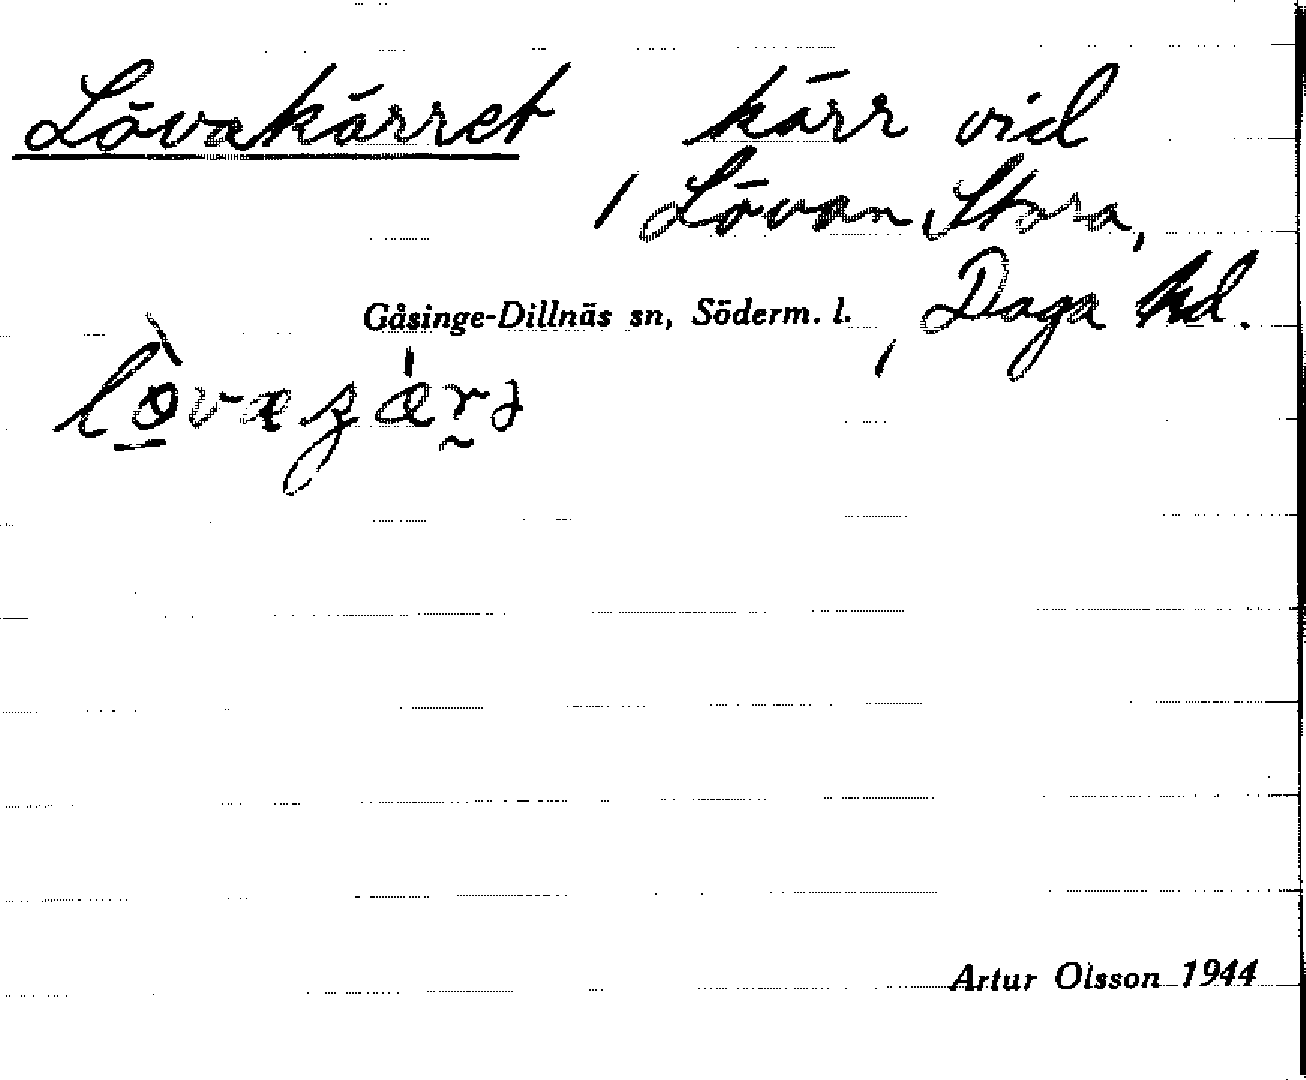 Lövakärret kärr vid
Lövan, Stora,
Gåsinge-Dillnäs sn, Söderm. l. Daga hd.
Artur Olsson 1944